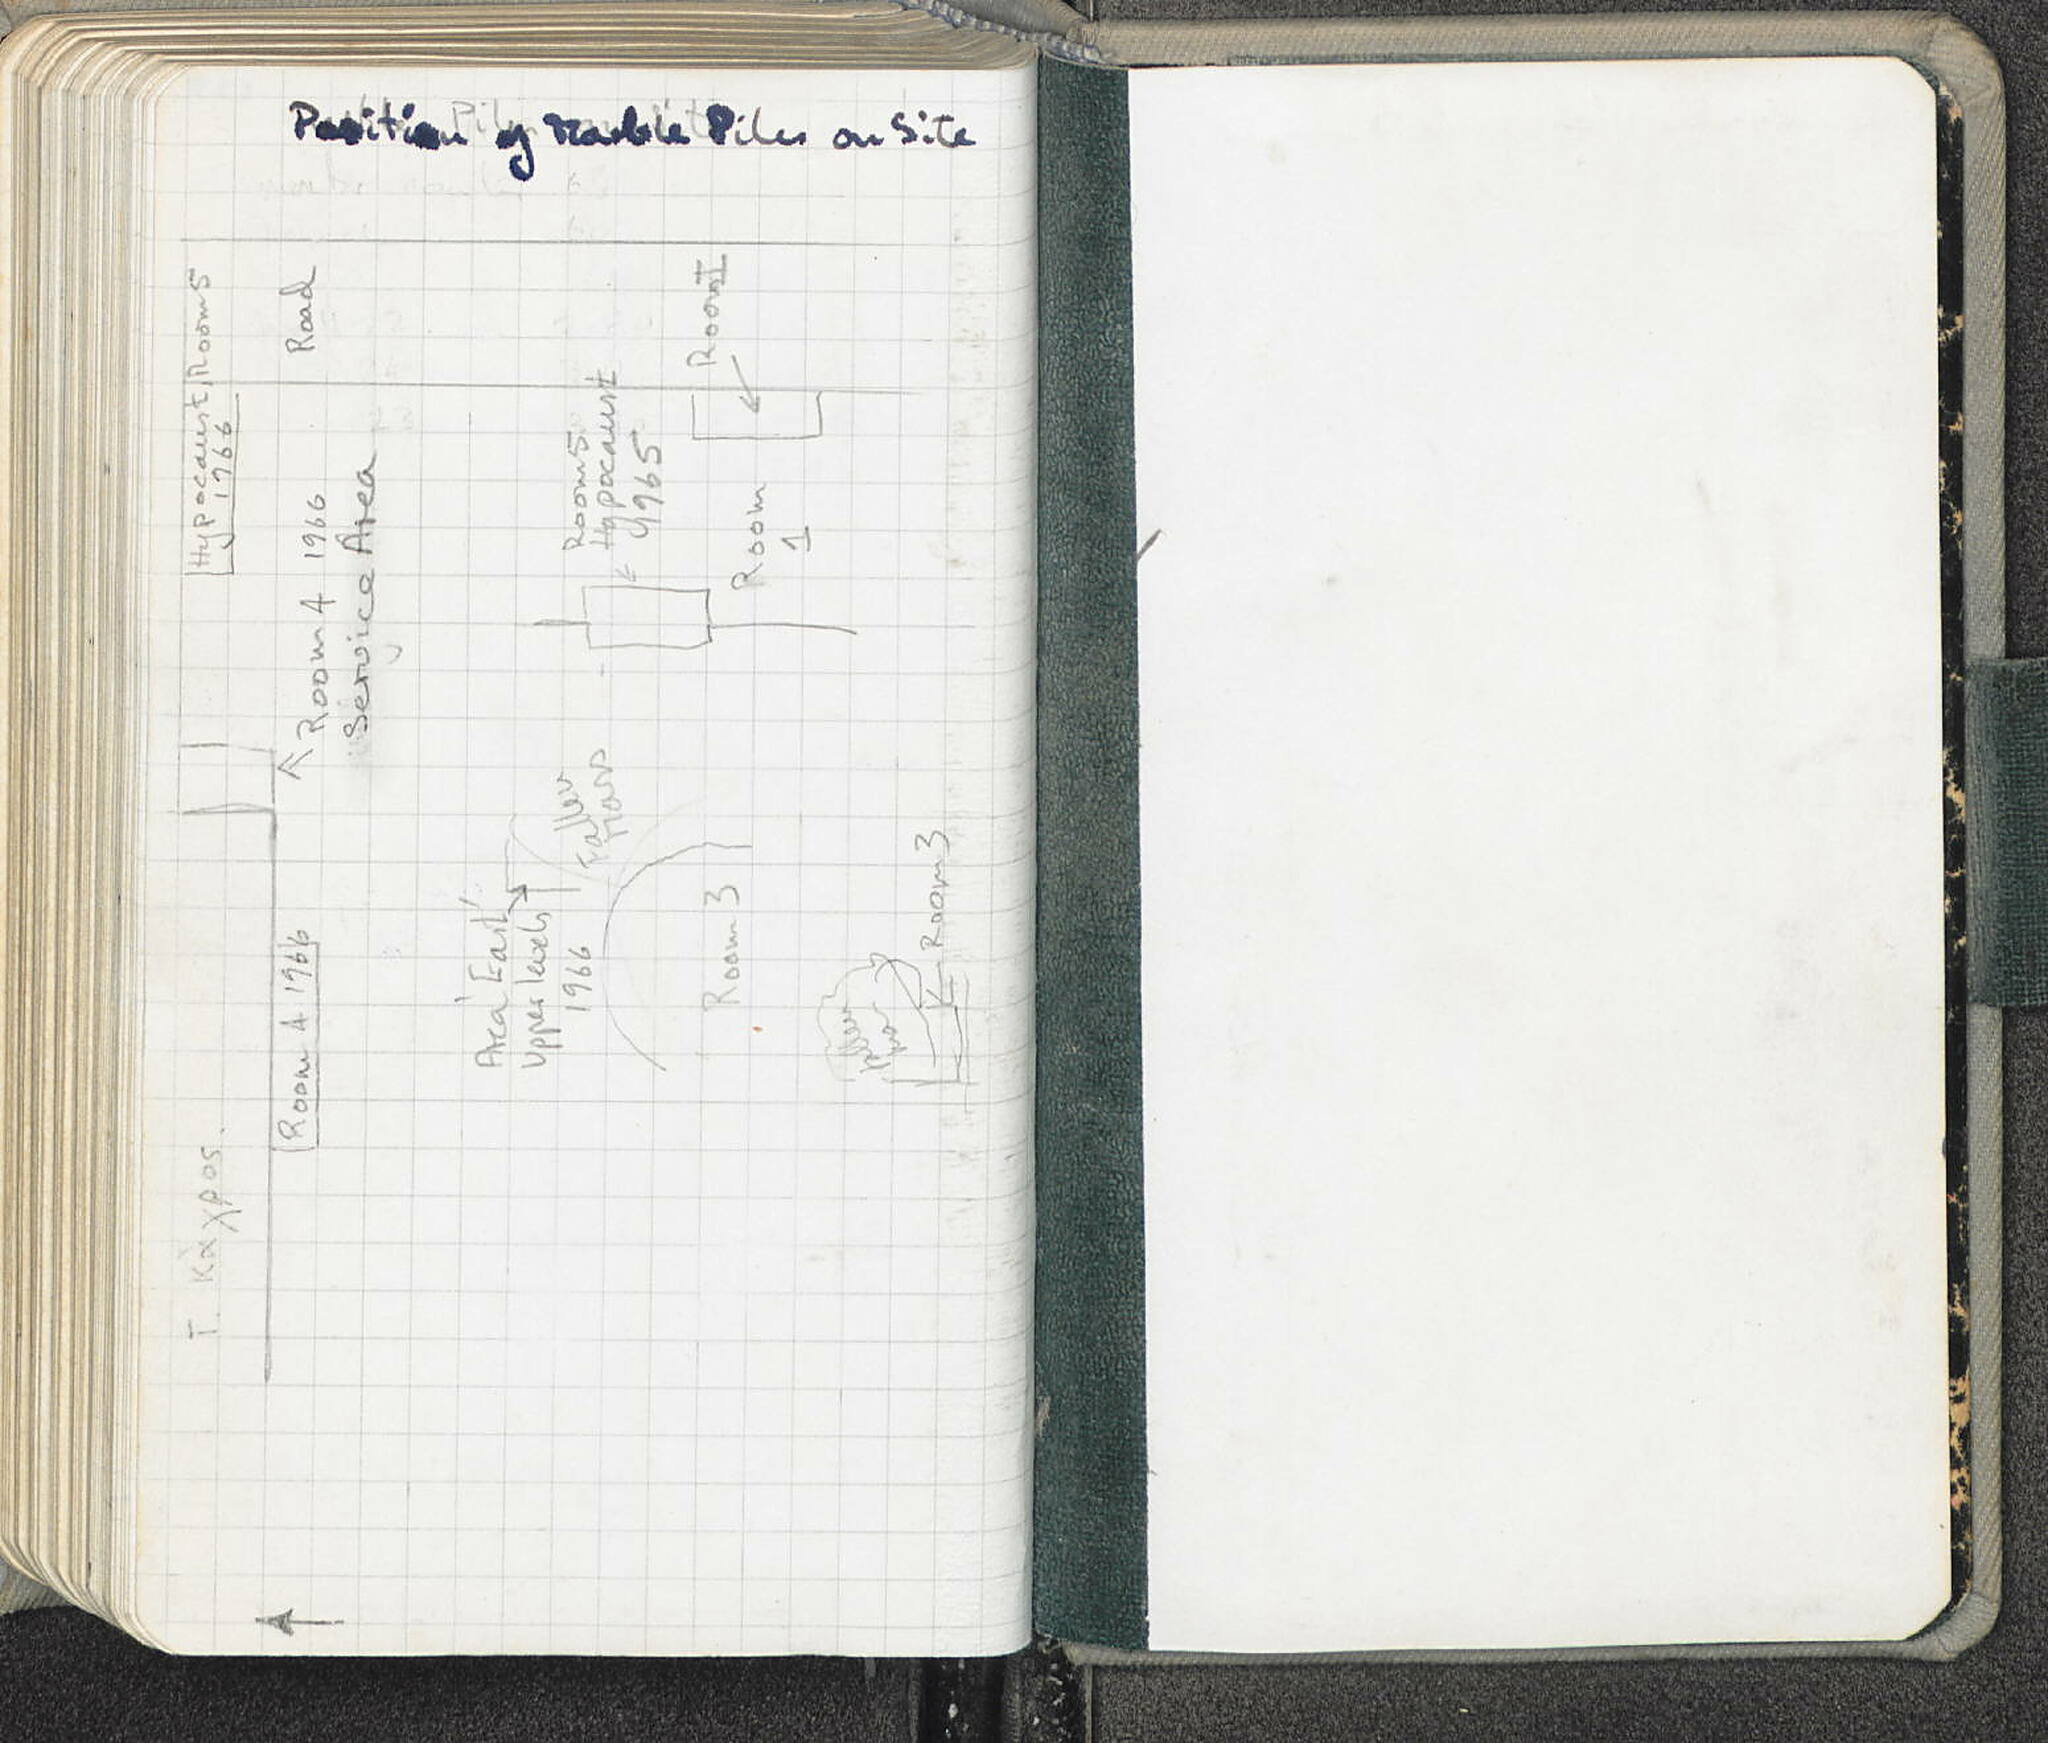 Position of Marble Piles on Site
Hypocaust, Room 5
1966
Road
Room 4 1966
Service Area
Room 5
Hypocaust
1965
Room I
Room
1
Area 'East'
Upper levels
1966
Fallen
Mass
Room 3
Room 3
Room 4 1966
Τ. κάγρος.